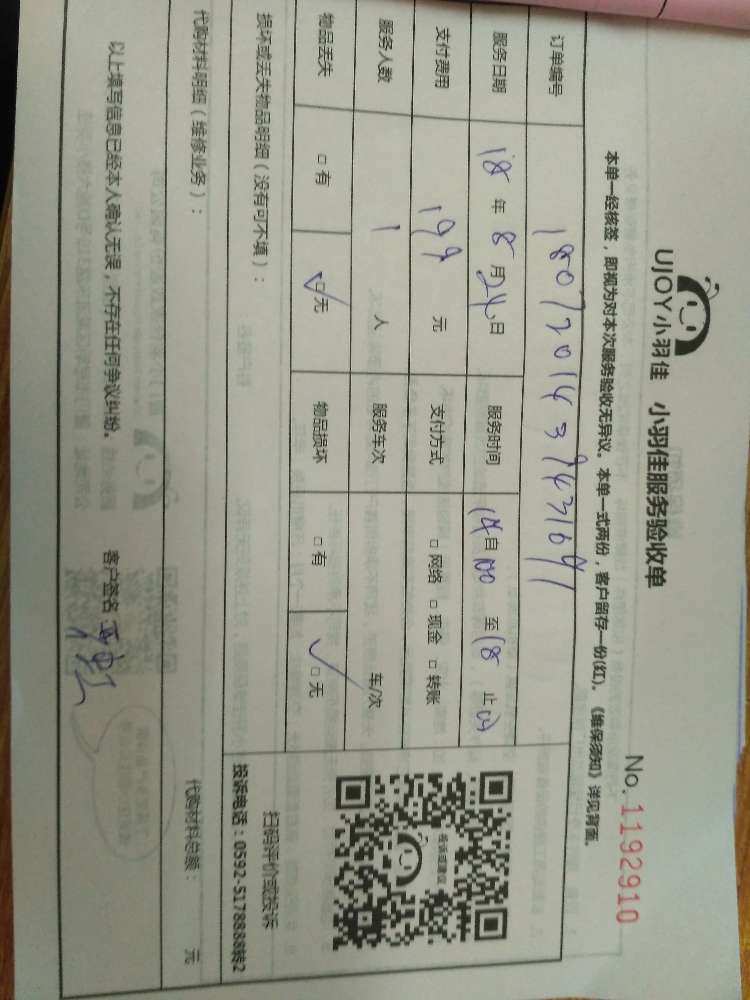 UJOY小羽佳 小羽佳服务验收单
No.1192910
本单一经核签，即视为对本次服务验收无异议。本单一式两份，客户留存一份(红)。《维保须知》详见背面。
订单编号
服务日期 18 年 8 月 24 日 服务时间 14 自 00 至 18 止
支付费用 199 元 支付方式 □ 网络 □ 现金 □ 转账
服务人数 1 人 服务车次 车/次
物品丢失 □ 有 □ 无 物品损坏 □ 有 □ 无
损坏或丢失物品明细（没有可不填）：
投诉或建议
扫码评价或投诉
投诉电话：0592-5178888转2
代购材料明细（维修业务）： 代购材料总额： 元
以上填写信息已经本人确认无误，不存在任何争议纠纷。 客户签名